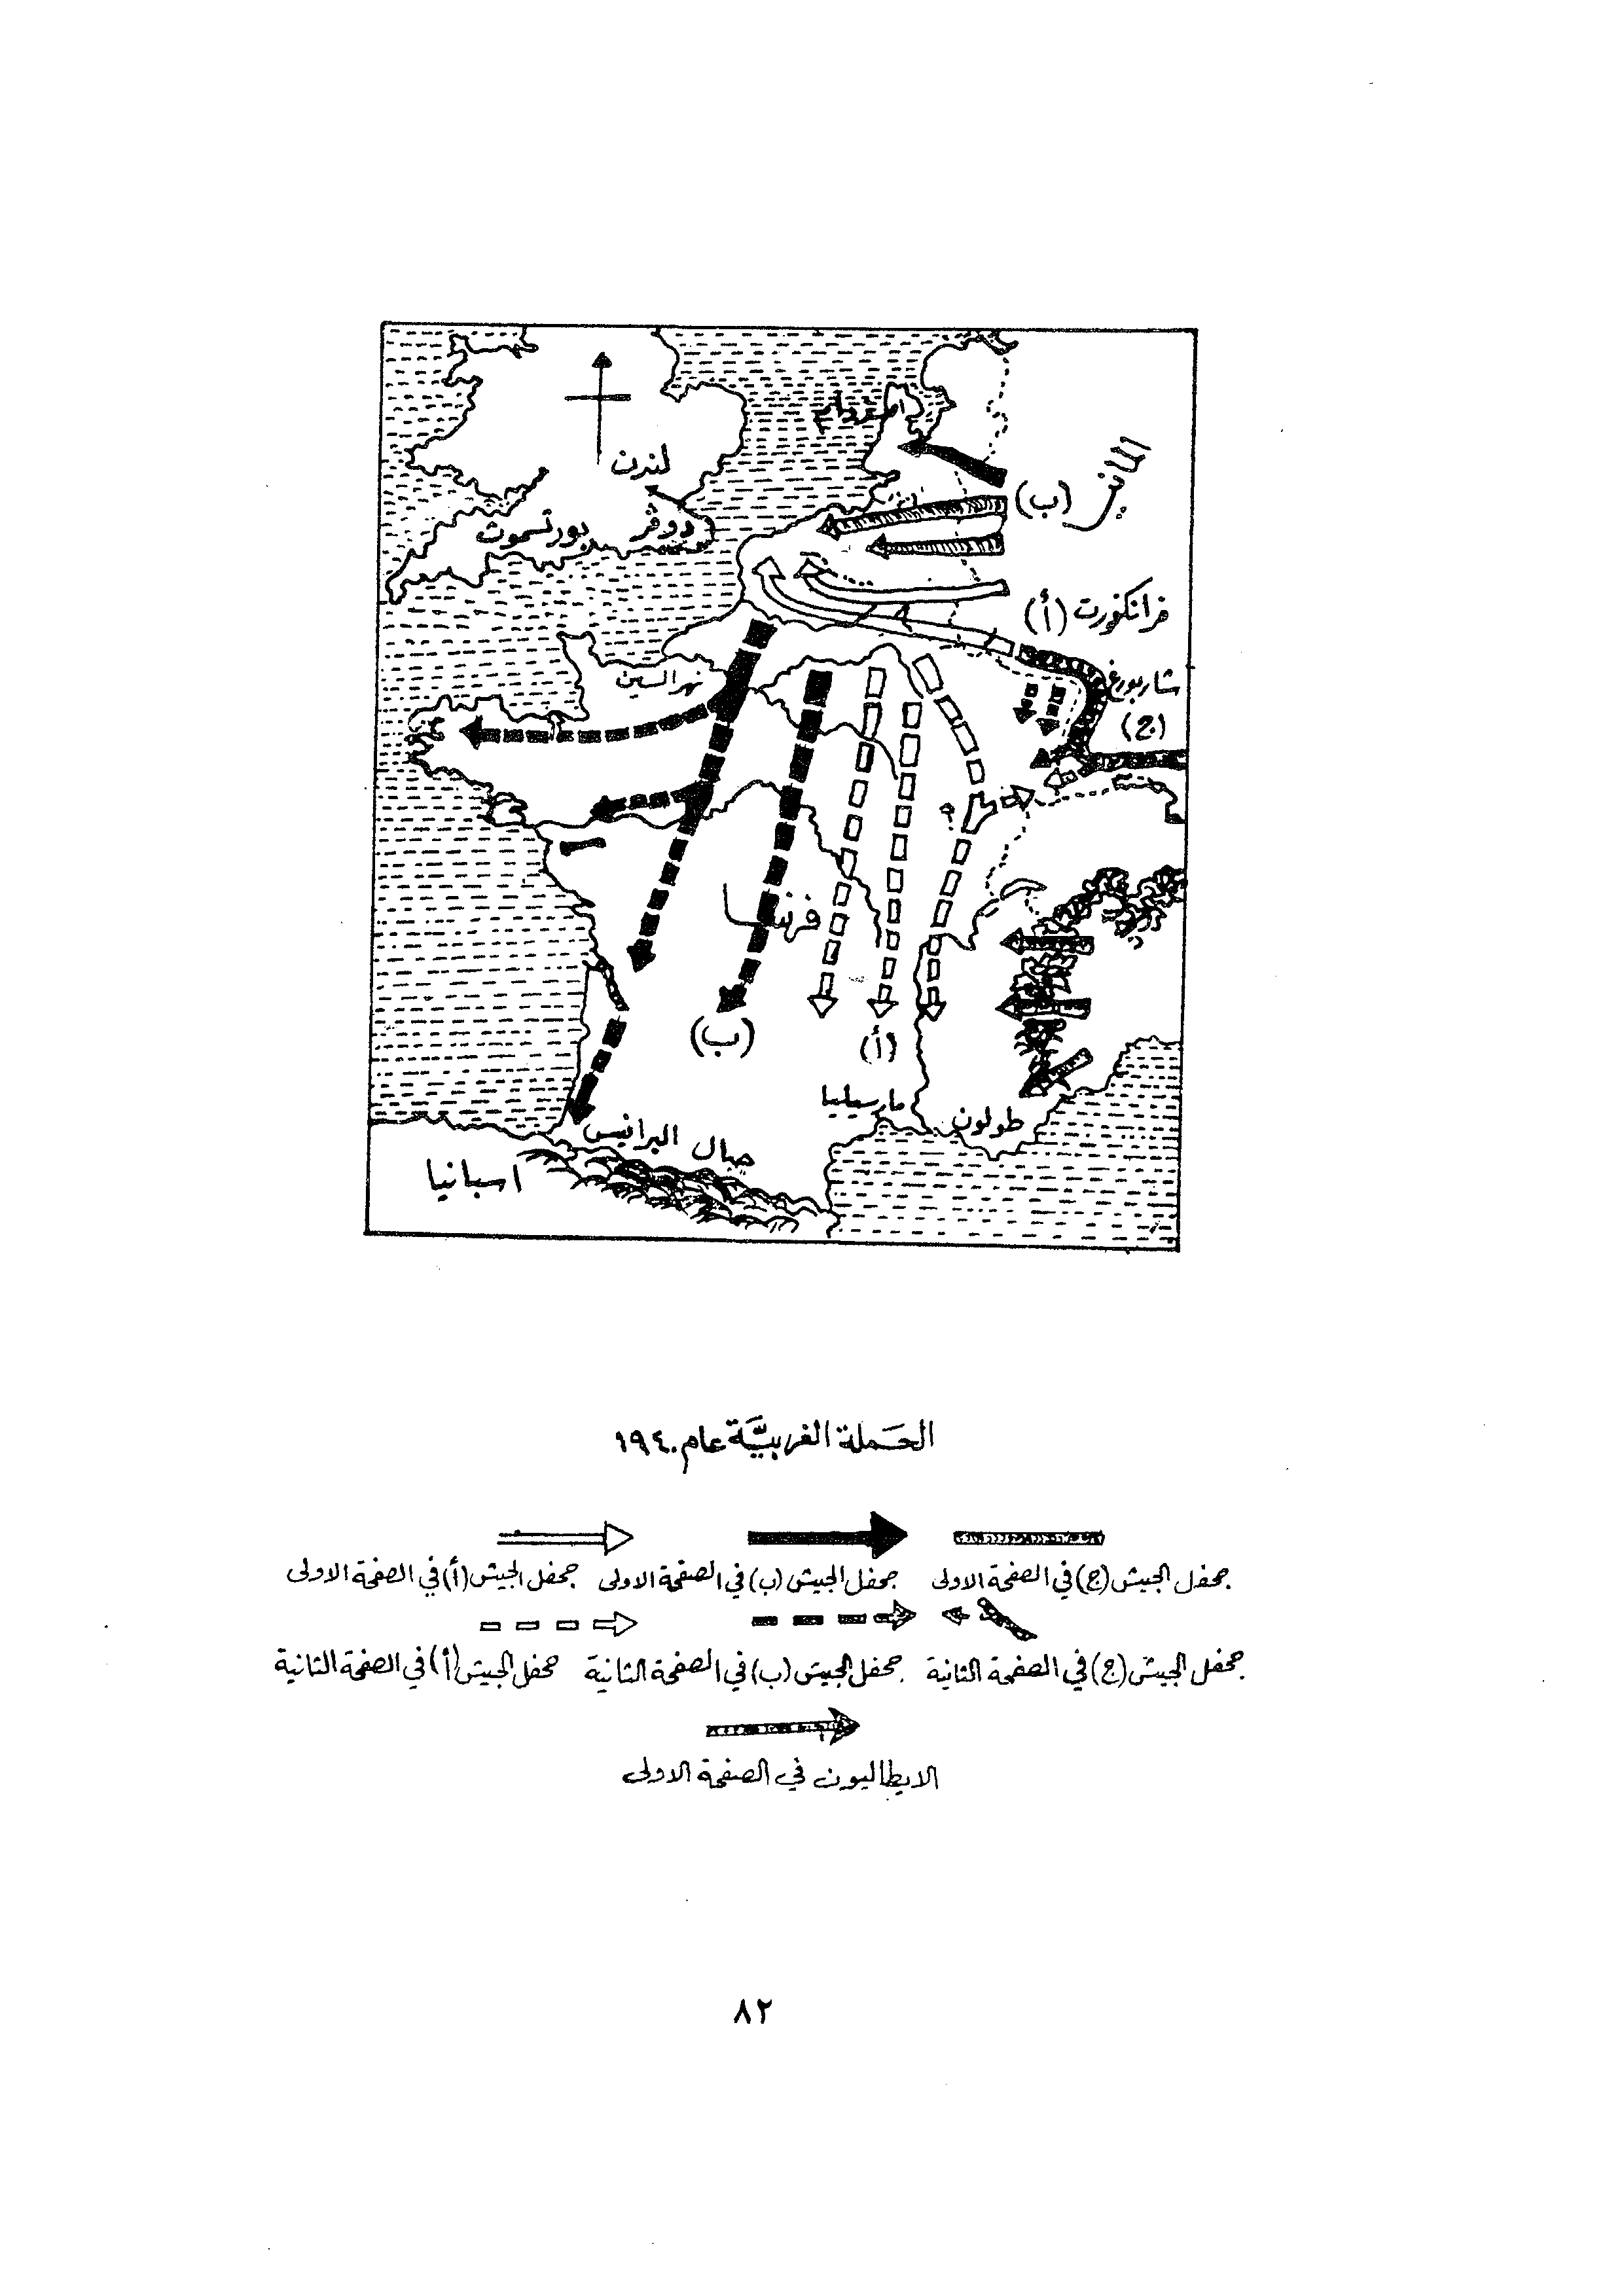 امستردام
لندن
المانيا
(ب)
دوڤر
بورتسموث
فرانكفورت (أ)
نهر السين
(ج)
فرنسا
(ب)
(أ)
مارسيليا
طولون
جبال البرانيس
اسبانيا
الحملة الغربيَّة عام ١٩٤٠
جحفل الجيش (ج) في الصفحة الاولى
جحفل الجيش (ب) في الصفحة الاولى
جحفل الجيش (أ) في الصفحة الاولى
جحفل الجيش (ج) في الصفحة الثانية
جحفل الجيش (ب) في الصفحة الثانية
جحفل الجيش (أ) في الصفحة الثانية
الايطاليون في الصفحة الاولى
٨٢